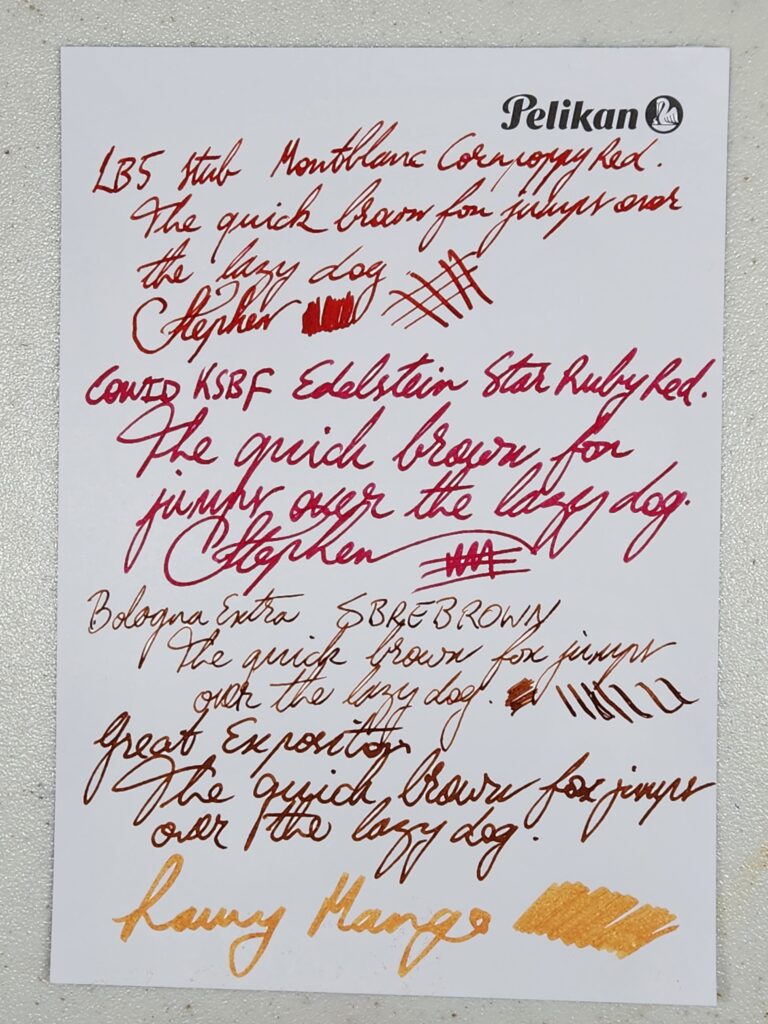 Pelikan
LB5 stub Montblanc Cornpoppy Red.
The quick brown fox jumps over
the lazy dog
Stephen
COWID KSBF Edelstein Star Ruby Red.
The quick brown fox
jumps over the lazy dog.
Stephen
Bologna Extra SBREBROWN
The quick brown fox jumps
over the lazy dog.
Great Expositton
The quick brown fox jumps
over the lazy dog.
Mango